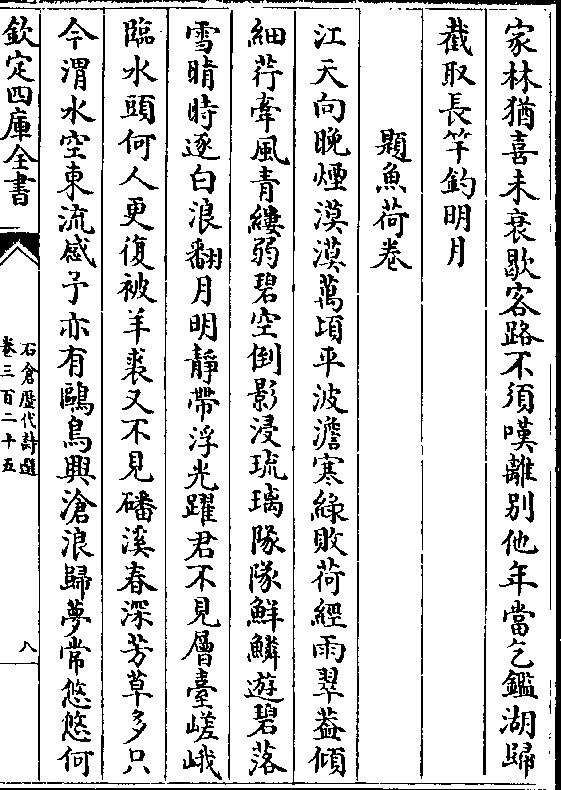 家林猶喜未衰歇客路不須嘆離别他年當乞鑑湖歸
截取長竿釣明月
題魚荷卷
江天向晚煙漠漠萬頃平波澹寒緑敗荷經雨翠葢傾
細荇牽風青縷弱碧空倒影浸琉璃隊隊鮮鱗遊碧落
雪晴時逐白浪翻月明靜帶浮光躍君不見層臺嵯峨
臨水頭何人更復被羊裘又不見磻溪春深芳草多只
今渭水空東流感予亦有鷗鳥興滄浪歸夢常悠悠何
欽定四庫全書
石倉歴代詩選
卷三百二十五
八